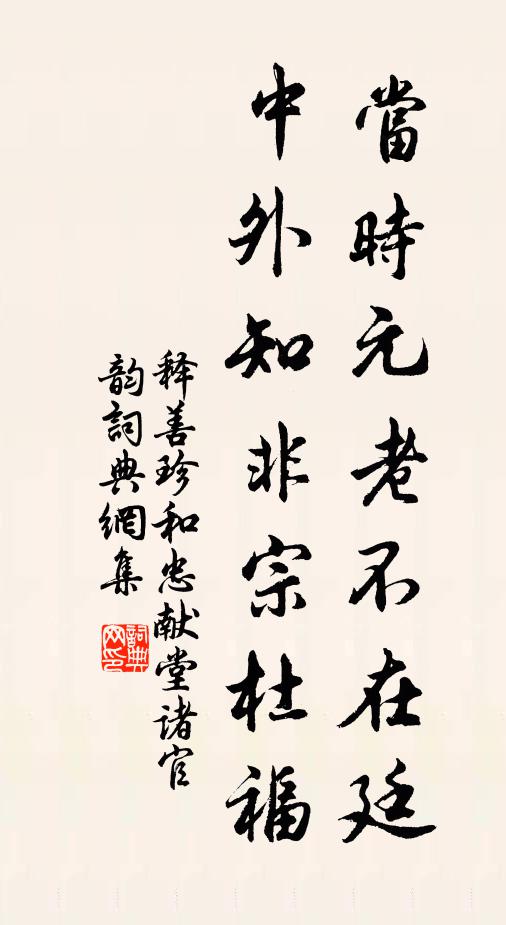 當時元老不在廷
中外知非宗社福
釋善珍和忠献堂諸官
韵詞典網集
詞典网印